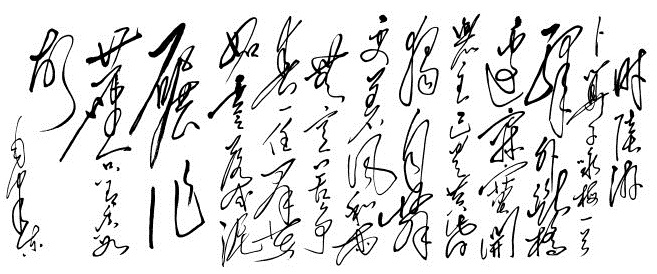 陆游
卜算子咏梅一首
驿外断桥
边寂寞开
無主已是黄昏
独自愁
更著风和雨
無意苦争
春一任群芳
妒零落成泥
碾作
塵只有香如
故
毛泽东